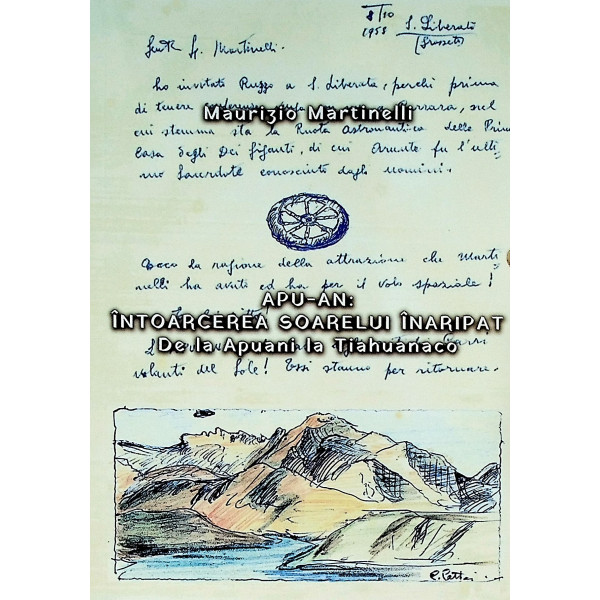 8/10
1955 S. Liberata
(Grosseto)
Martinelli.
ho invitato Ruggo a S. Liberata, perchè prima
di tenere Carrara, nel
Maurizio Martinelli
cui stemma sta la Ruota Astronautica della Prim
Casa degli Dei Giganti, di cui Arunte fu l'ulti
mo Sacerdote conosciuto dagli uomini.
Ecco la ragione della attrazione che Marti
nelli ha avuto ed ha per il volo spaziale!
APU-AN:
ÎNTOARCEREA SOARELUI ÎNARIPAT
De la Apuani la Tiahuanaco
volanti del Sole! Essi stanno per ritornare.